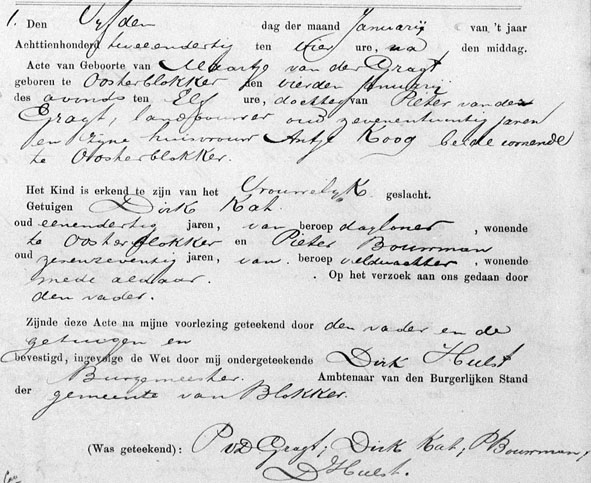 1. Den Vyfden dag der maand Januarij van 't jaar
Achttienhonderd tweeendertig ten vier ure, na den middag.
Acte van Geboorte van Maartje van der Gragt
geboren te Oosterblokker den vierden Januarij
des avonds ten Elf ure, dochter van Pieter van der
Gragt, landbouwer oud zevenentwintig jaren
en zijne huisvrouw Antje Koog beide wonende
te Oosterblokker.
Het Kind is erkend te zijn van het Vrouwelyk geslacht.
Getuigen Dirk Kat
oud eenendertig jaren, van beroep dagloner, wonende
te Oosterblokker en Pieter Bouwman
oud zevenzeventig jaren, van beroep veldwachter, wonende
mede aldaar. Op het verzoek aan ons gedaan door
den vader.
Zijnde deze Acte na mijne voorlezing geteekend door den vader en de
getuigen en
bevestigd, ingevolge de Wet door mij ondergeteekende Dirk Hulst
Burgemeester. Ambtenaar van den Burgerlijken Stand
der gemeente van Blokker.
(Was geteekend): P vD Gragt, Dirk Kat, P Bouwman,
D Hulst.